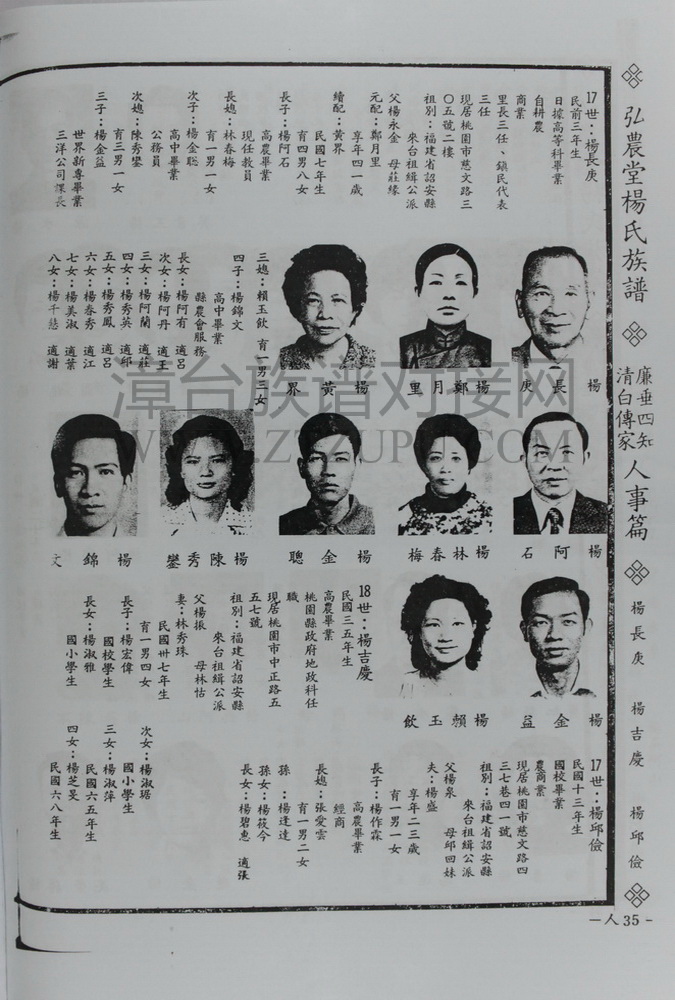 弘農堂楊氏族譜
廉垂四知
清白傳家
人事篇
楊長庚
楊吉慶
楊邱儉
17世：楊長庚
民前三年生
日據高等科畢業
自耕農
商業
里長三任、鎮民代表
三任
現居桃園市慈文路三
〇五號二樓
祖別：福建省詔安縣
來台祖緝公派
父楊永金 母莊緣
元配：鄭月里
享年四一歲
繼配：黃界
民國七年生
育四男八女
長子：楊阿石
高農畢業
現任教員
長媳：林春梅
育一男一女
次子：楊金聰
高中畢業
公務員
次媳：陳秀鑾
育三男一女
三子：楊金益
世界新專畢業
三洋公司課長
三媳：賴玉飲 育一男三女
四子：楊錦文
高中畢業
縣農會服務
長女：楊阿有 適呂
次女：楊阿丹 適王
三女：楊阿蘭 適莊
四女：楊秀英 適邱
五女：楊秀鳳 適呂
六女：楊春秀 適江
七女：楊美淑 適葉
八女：楊千慧 適謝
楊長庚
楊鄭月里
楊黃界
楊阿石
楊林春梅
楊金聰
楊陳秀鑾
楊錦文
楊金益
楊賴玉飲
18世：楊吉慶
民國三五年生
高農畢業
桃園縣政府地政科任
職
現居桃園市中正路五
五七號
祖別：福建省詔安縣
來台祖緝公派
父楊振 母林怙
妻：林秀珠
民國卅七年生
育一男四女
長子：楊宏偉
國校學生
長女：楊淑雅
國小學生
次女：楊淑琚
國小學生
三女：楊淑萍
民國六五年生
四女：楊芝旻
民國六八年生
17世：楊邱儉
民國十三年生
國校畢業
農商業
現居桃園市慈文路四
三七巷四一號
祖別：福建省詔安縣
來台祖緝公派
父楊泉 母邱回妹
夫：楊盛
享年二三歲
育一男一女
長子：楊作霖
高農畢業
經商
長媳：張愛雲
育一男二女
孫：楊逢達
孫女：楊筱今
長女：楊碧惠 適張
－人35－
漳台族谱对接网
WWW.ZTZUPU.COM